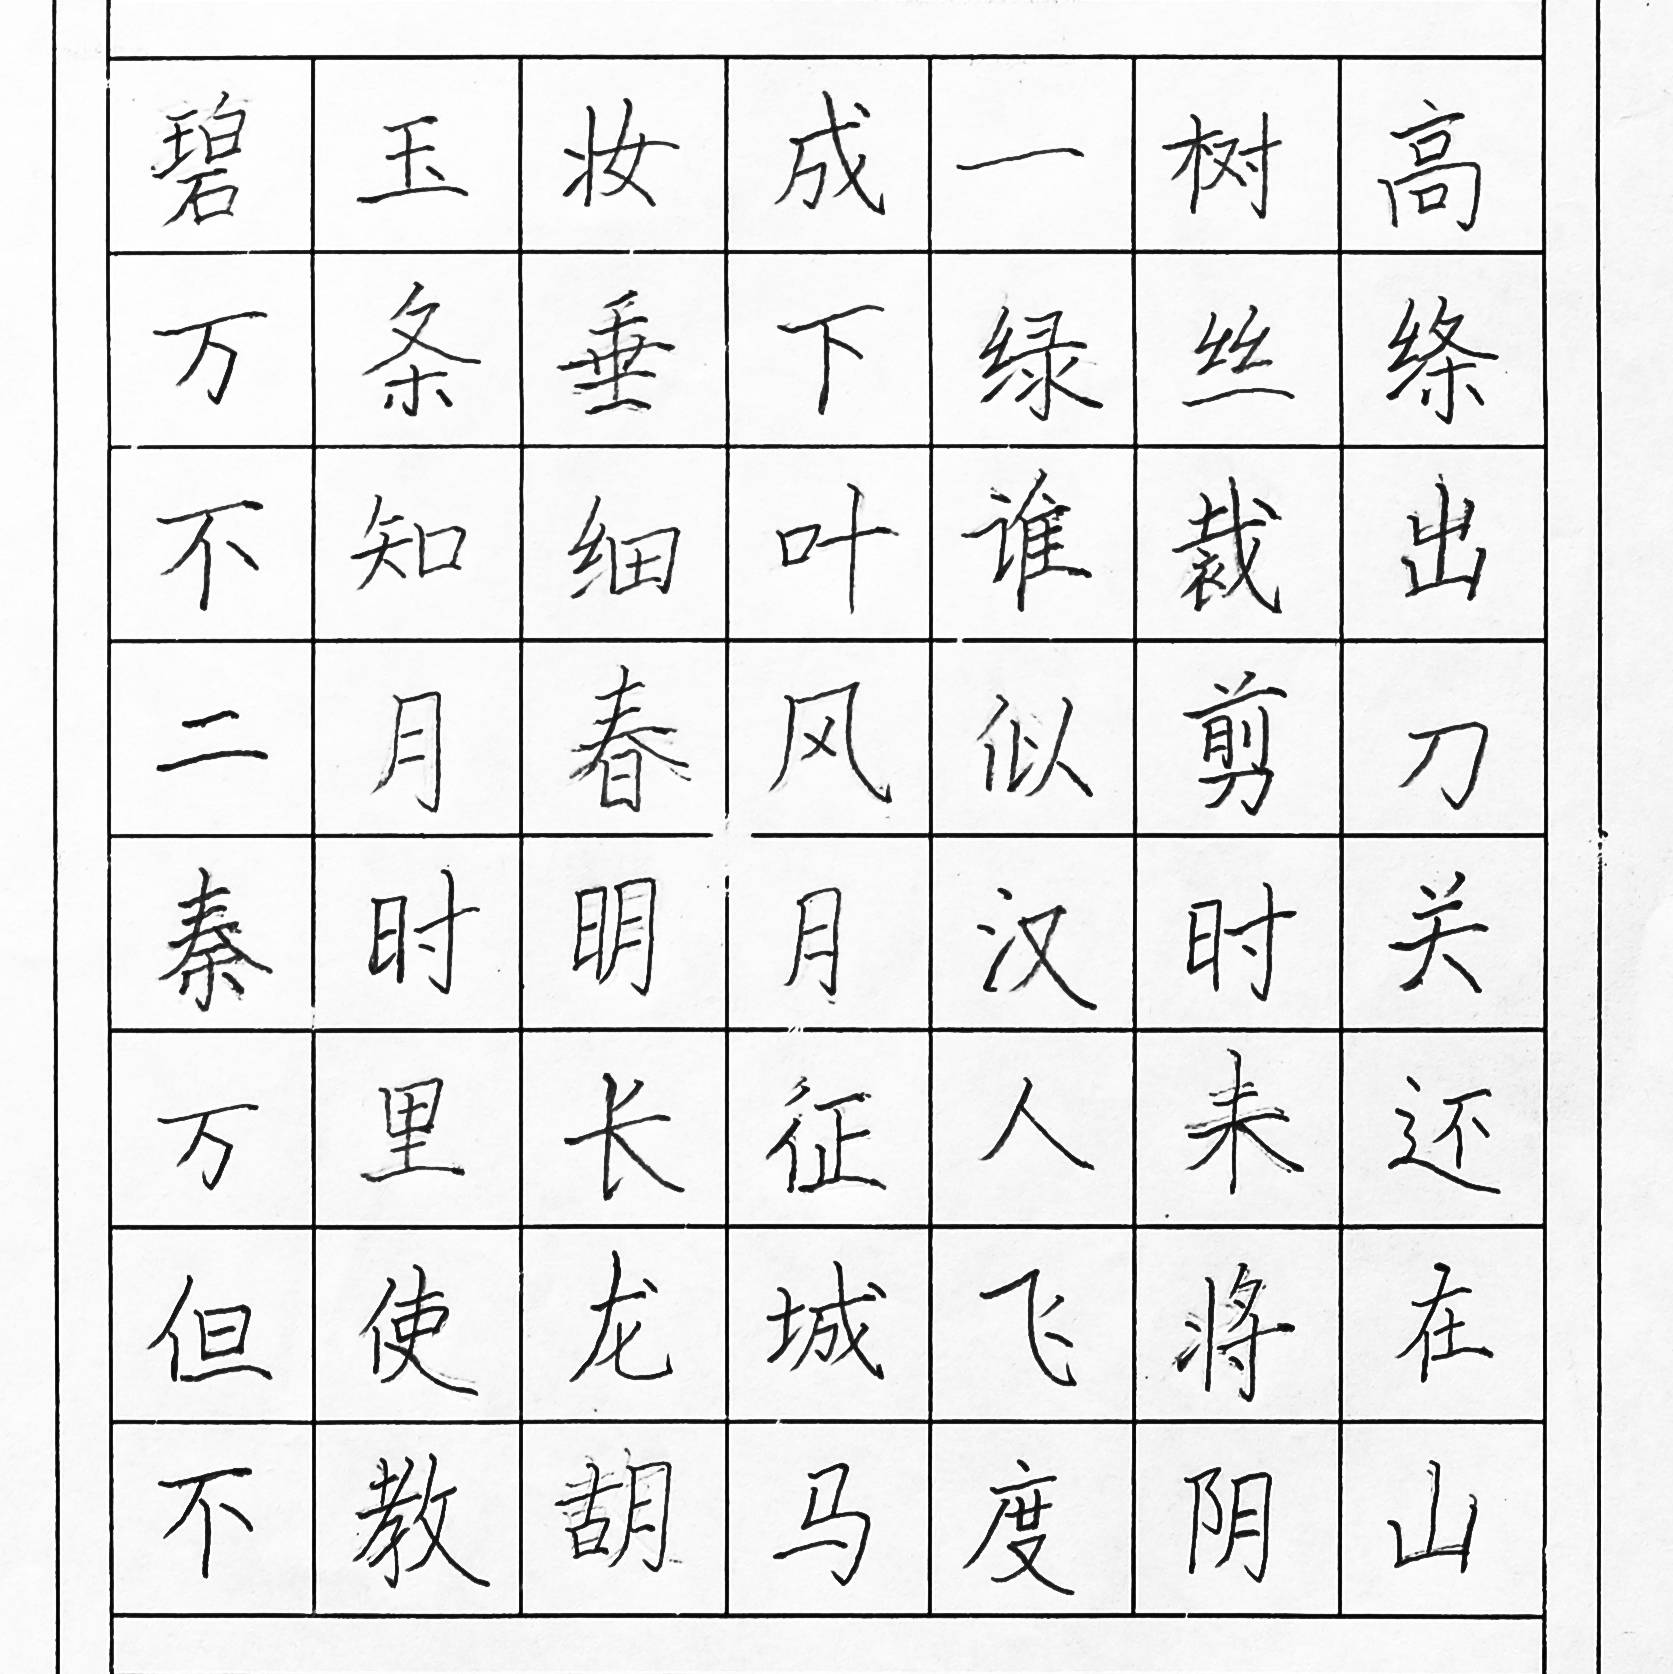 碧玉妆成一树高
万条垂下绿丝绦
不知细叶谁裁出
二月春风似剪刀
秦时明月汉时关
万里长征人未还
但使龙城飞将在
不教胡马度阴山